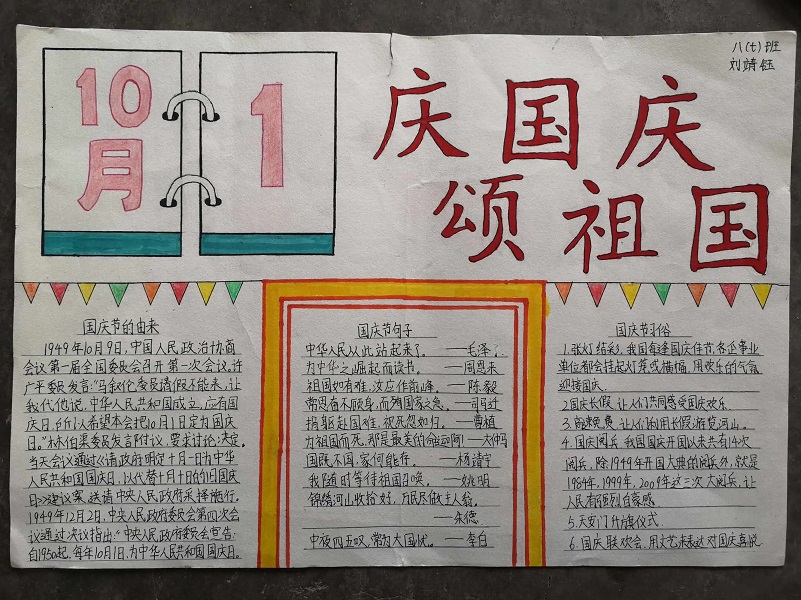 八(七)班
刘靖钰
10月
1
庆国庆
颂祖国
国庆节的由来
1949年10月9日,中国人民政治协商
会议第一届全国委员会召开第一次会议,许
广平委员发言:"马叙伦委员请假不能来,让
我代他说,中华人民共和国成立,应有国
庆日,所以希望本会把10月1日定为国庆
日。"林伯渠委员发言附议,要求讨论决定。
当天会议通过《请政府明定十月一日为中华
人民共和国国庆日,以代替十月十日的旧国庆
日》建议案,送请中央人民政府采择施行。
1949年12月2日,中央人民政府委员会第四次会
议通过决议指出:"中央人民政府委员会宣告:
自1950起,每年10月1日,为中华人民共和国国庆日。
国庆节句子
中华人民从此站起来了。——毛泽
为中华之崛起而读书。——周恩来
祖国如有难,汝应作前锋。——陈毅
常思奋不顾身,而殉国家之急。——司马迁
捐躯赴国难,视死忽如归。——曹植
为祖国而死,那是最美的命运啊!——大仲马
国既不国,家何能存。——杨靖宇
我随时等待祖国召唤。——姚明
锦绣河山收拾好,万民尽做主人翁。
——朱德
中夜四五叹,常为大国忧。——李白
国庆节习俗
1.张灯结彩,我国每逢国庆佳节,各企事业
单位都会挂起灯笼或横幅,用欢乐的气氛
迎接国庆.
2国庆长假,让人们共同感受国庆欢乐.
3.免费,让人们利用长假,游览河山.
4.国庆阅兵,我国国庆开国以来共有14次
阅兵,除1949年开国大典的阅兵外,就是
1984年,1999年,2009年这三次大阅兵,让
人民有强烈自豪感
5.天安门升旗仪式.
6.国庆联欢会,用文艺来表达对国庆喜悦